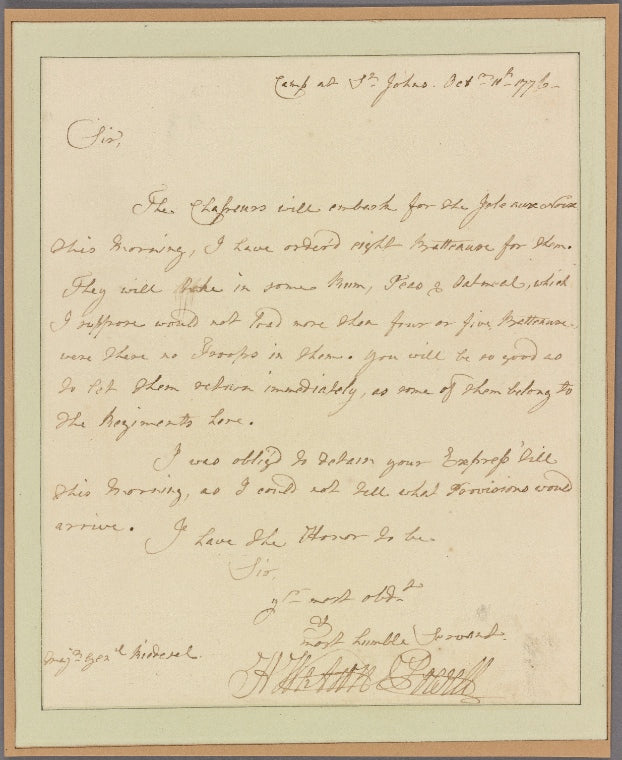 Camp at St Johns. Octr. 11th 1776.
Sir,
The Chasseurs will embark for the Isle aux Noix
this Morning, I have order'd eight Batteaux for them.
They will take in some Rum, Peas & Oatmeal, which
I suppose would not load more then four or five Batteaux
were there no Troops in them. you will be so good as
to let them return immediately, as some of them belong to
the Regiments here.
I was oblig'd to detain your Express till
this Morning, as I could not tell what Provisions would
arrive. I have the Honor to be
Sir,
yr most obdt
&
most humble Servant.
Majr. Genl Riedesel.
H Watson Powell